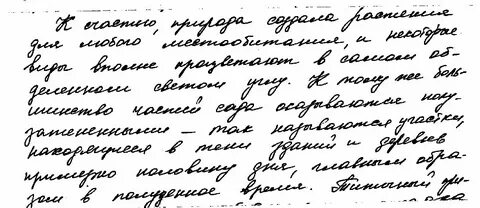 К счастью, природа создала растения
для любого местообитания, и некоторые
виды вполне процветают в самом об-
деленном светом углу. К тому же боль-
шинство частей сада оказываются полу-
затененными – так называются участки,
находящиеся в тени зданий и деревьев
примерно половину дня, главным обра-
зом в полуденное время. Типичный при-